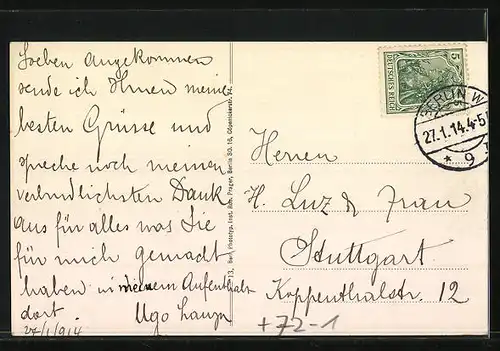 Soeben angekommen
sende ich Ihnen meine
besten Grüsse und
spreche noch meinen
verbindlichsten Dank
aus für alles was Sie
für mich gemacht
haben in meinem Aufenthalt
dort. Ugo
27/1/914
Berlin SO. 16, Cöpenickerstr.
5
DEUTSCHES REICH
BERLIN W
27.1.14.4-5
* 9
Herren
H. Luz & Frau
Stuttgart
Koppenthalstr. 12
+72-1